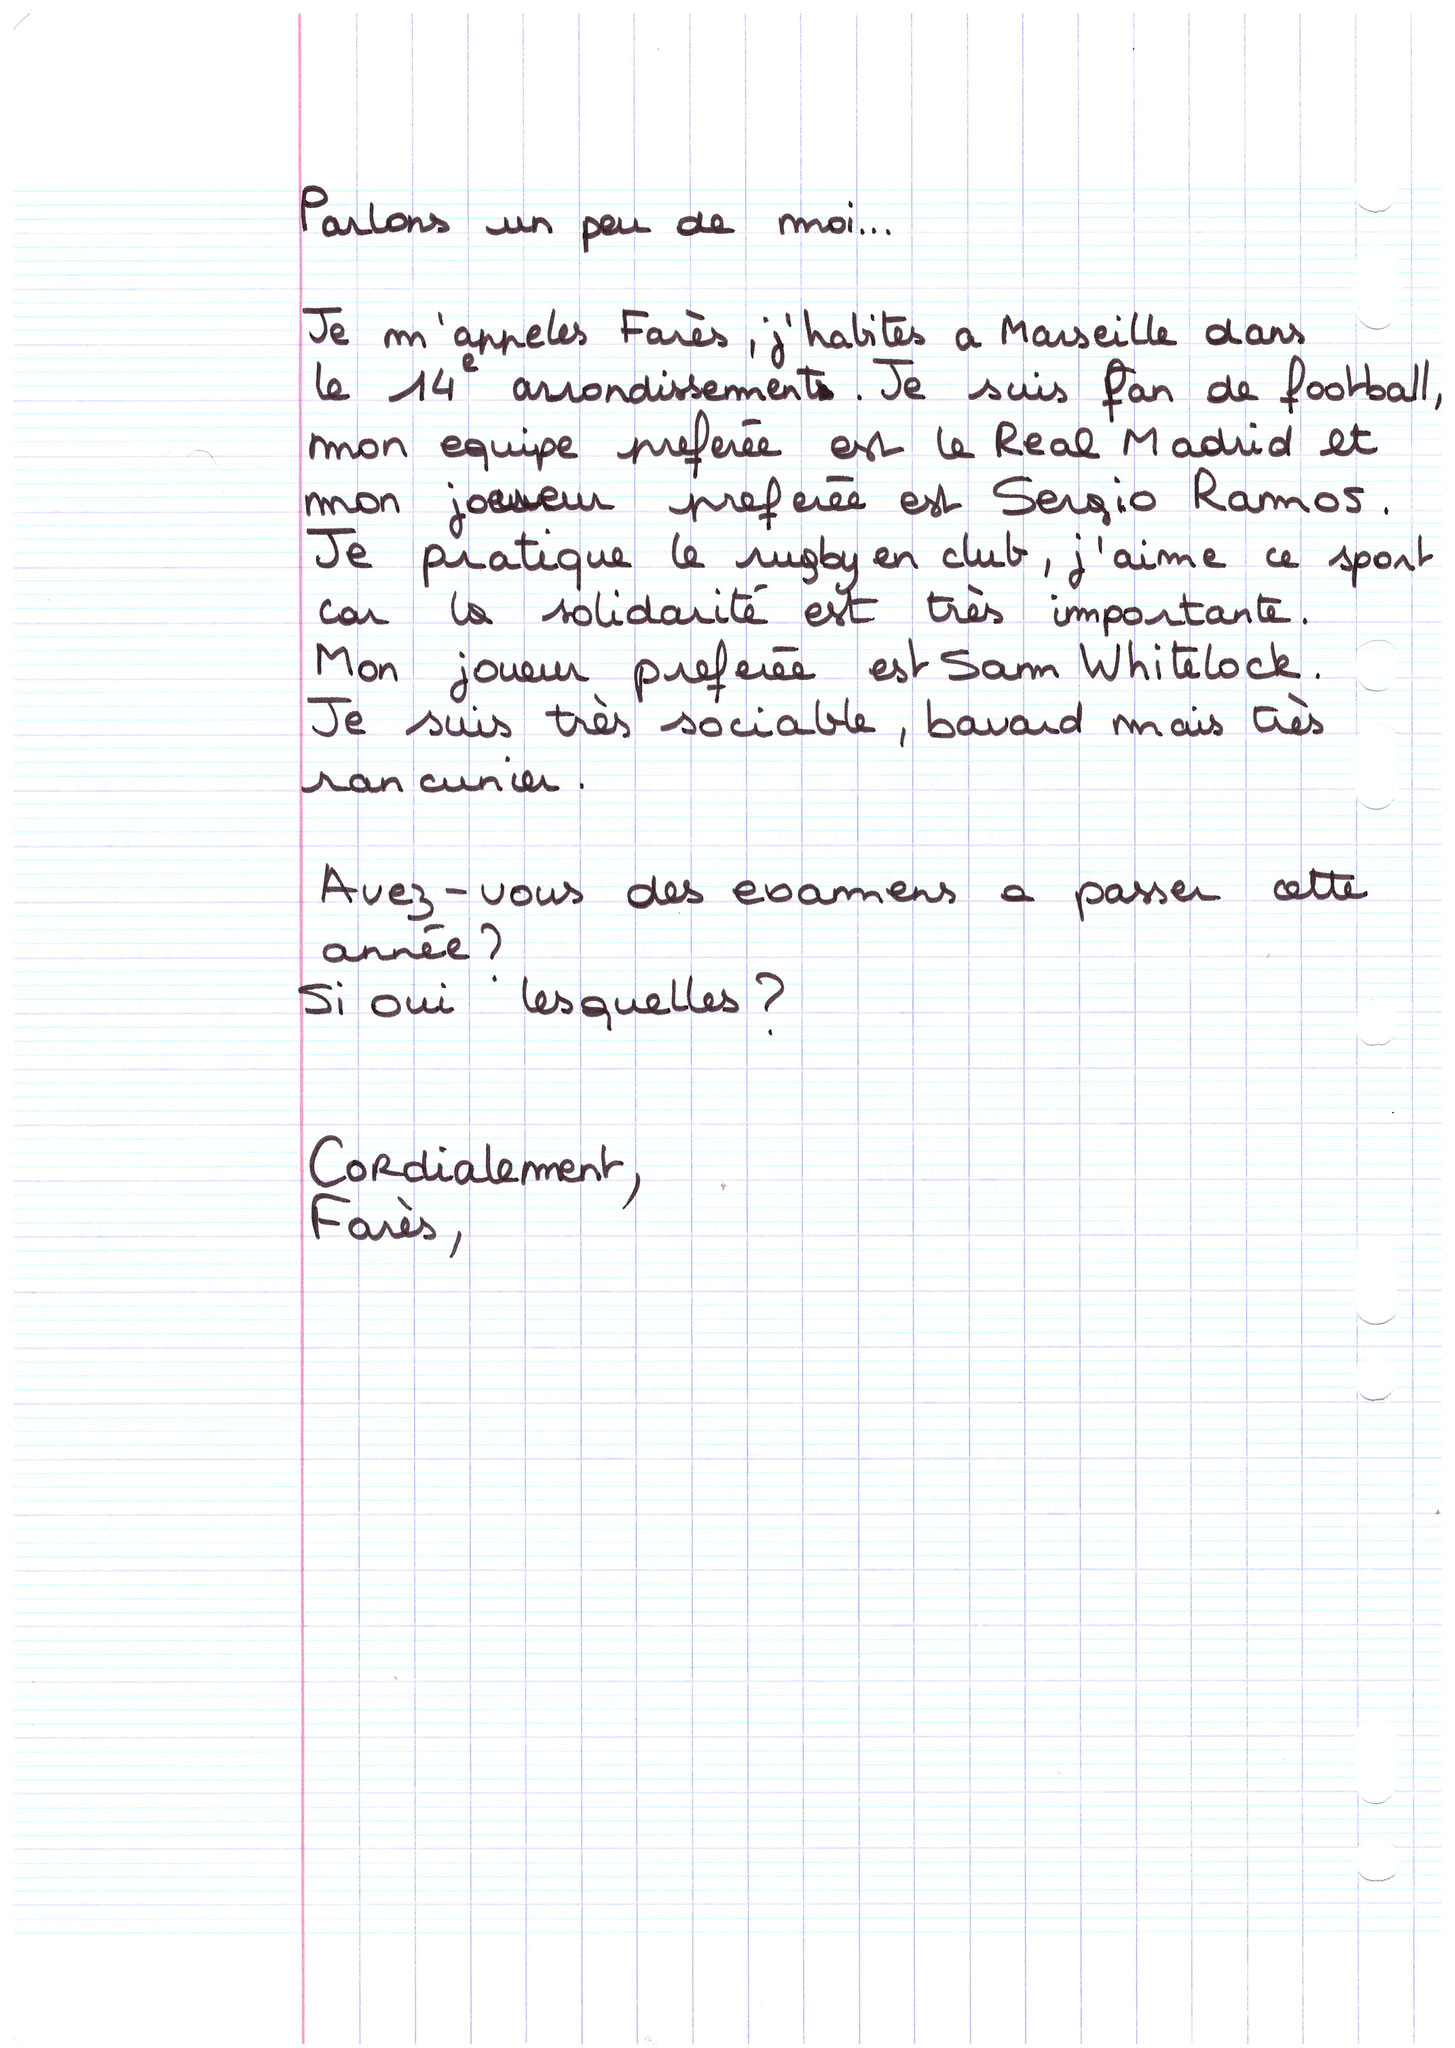 Parlons un peu de moi...
Je m'appeles Farès, j'habites a Marseille dans
le 14e arrondissement. Je suis fan de football,
mon equipe preferée est le Real Madrid et
mon joueur preferée est Sergio Ramos.
Je pratique le rugby en club, j'aime ce sport
car la solidarité est très importante.
Mon joueur preferée est Sam Whitelock.
Je suis très sociable, bavard mais très
rancunier.
Avez-vous des examens a passer cette
année?
Si oui lesquelles?
Cordialement,
Farès,